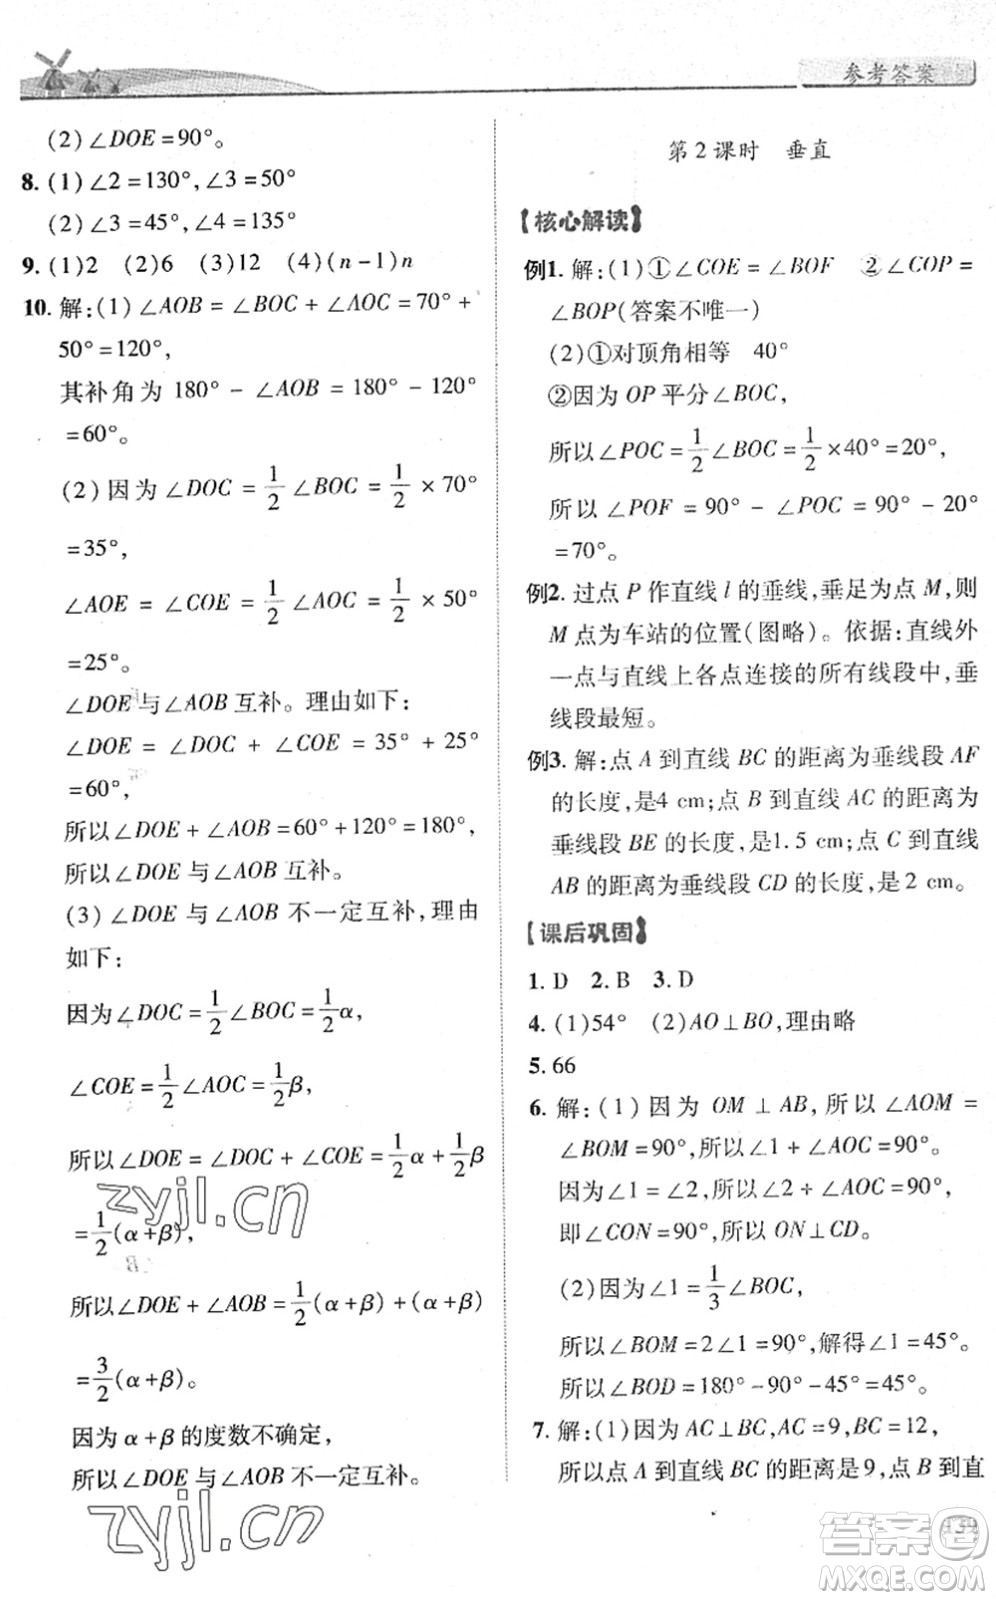 参考答案
(2)∠DOE=90°。
8. (1)∠2=130°,∠3=50°
(2)∠3=45°,∠4=135°
9. (1)2 (2)6 (3)12 (4)(n-1)n
10. 解:(1)∠AOB=∠BOC+∠AOC=70°+
50°=120°,
其补角为 180°-∠AOB=180°-120°
=60°。
(2)因为∠DOC=1/2∠BOC=1/2×70°
=35°,
∠AOE=∠COE=1/2∠AOC=1/2×50°
=25°。
∠DOE与∠AOB互补。理由如下:
∠DOE=∠DOC+∠COE=35°+25°
=60°,
所以∠DOE+∠AOB=60°+120°=180°,
所以∠DOE与∠AOB互补。
(3)∠DOE与∠AOB不一定互补,理由
如下:
因为∠DOC=1/2∠BOC=1/2α,
∠COE=1/2∠AOC=1/2β,
所以∠DOE=∠DOC+∠COE=1/2α+1/2β
=1/2(α+β),
所以∠DOE+∠AOB=1/2(α+β)+(α+β)
=3/2(α+β)。
因为α+β的度数不确定,
所以∠DOE与∠AOB不一定互补。
第2课时 垂直
【核心解读】
例1. 解:(1)①∠COE=∠BOF ②∠COP=
∠BOP(答案不唯一)
(2)①对顶角相等 40°
②因为OP平分∠BOC,
所以∠POC=1/2∠BOC=1/2×40°=20°,
所以∠POF=90°-∠POC=90°-20°
=70°。
例2. 过点P作直线l的垂线,垂足为点M,则
M点为车站的位置(图略)。依据:直线外
一点与直线上各点连接的所有线段中,垂
线段最短。
例3. 解:点A到直线BC的距离为垂线段AF
的长度,是4 cm;点B到直线AC的距离为
垂线段BE的长度,是1.5 cm;点C到直线
AB的距离为垂线段CD的长度,是2 cm。
【课后巩固】
1. D 2. B 3. D
4. (1)54° (2)AO⊥BO,理由略
5. 66
6. 解:(1)因为OM⊥AB,所以∠AOM=
∠BOM=90°,所以∠1+∠AOC=90°。
因为∠1=∠2,所以∠2+∠AOC=90°,
即∠CON=90°,所以ON⊥CD。
(2)因为∠1=1/3∠BOC,
所以∠BOM=2∠1=90°,解得∠1=45°。
所以∠BOD=180°-90°-45°=45°。
7. 解:(1)因为AC⊥BC,AC=9,BC=12,
所以点A到直线BC的距离是9,点B到直
zyjl.cn
zyjl.cn
答案圈
MXQE.COM